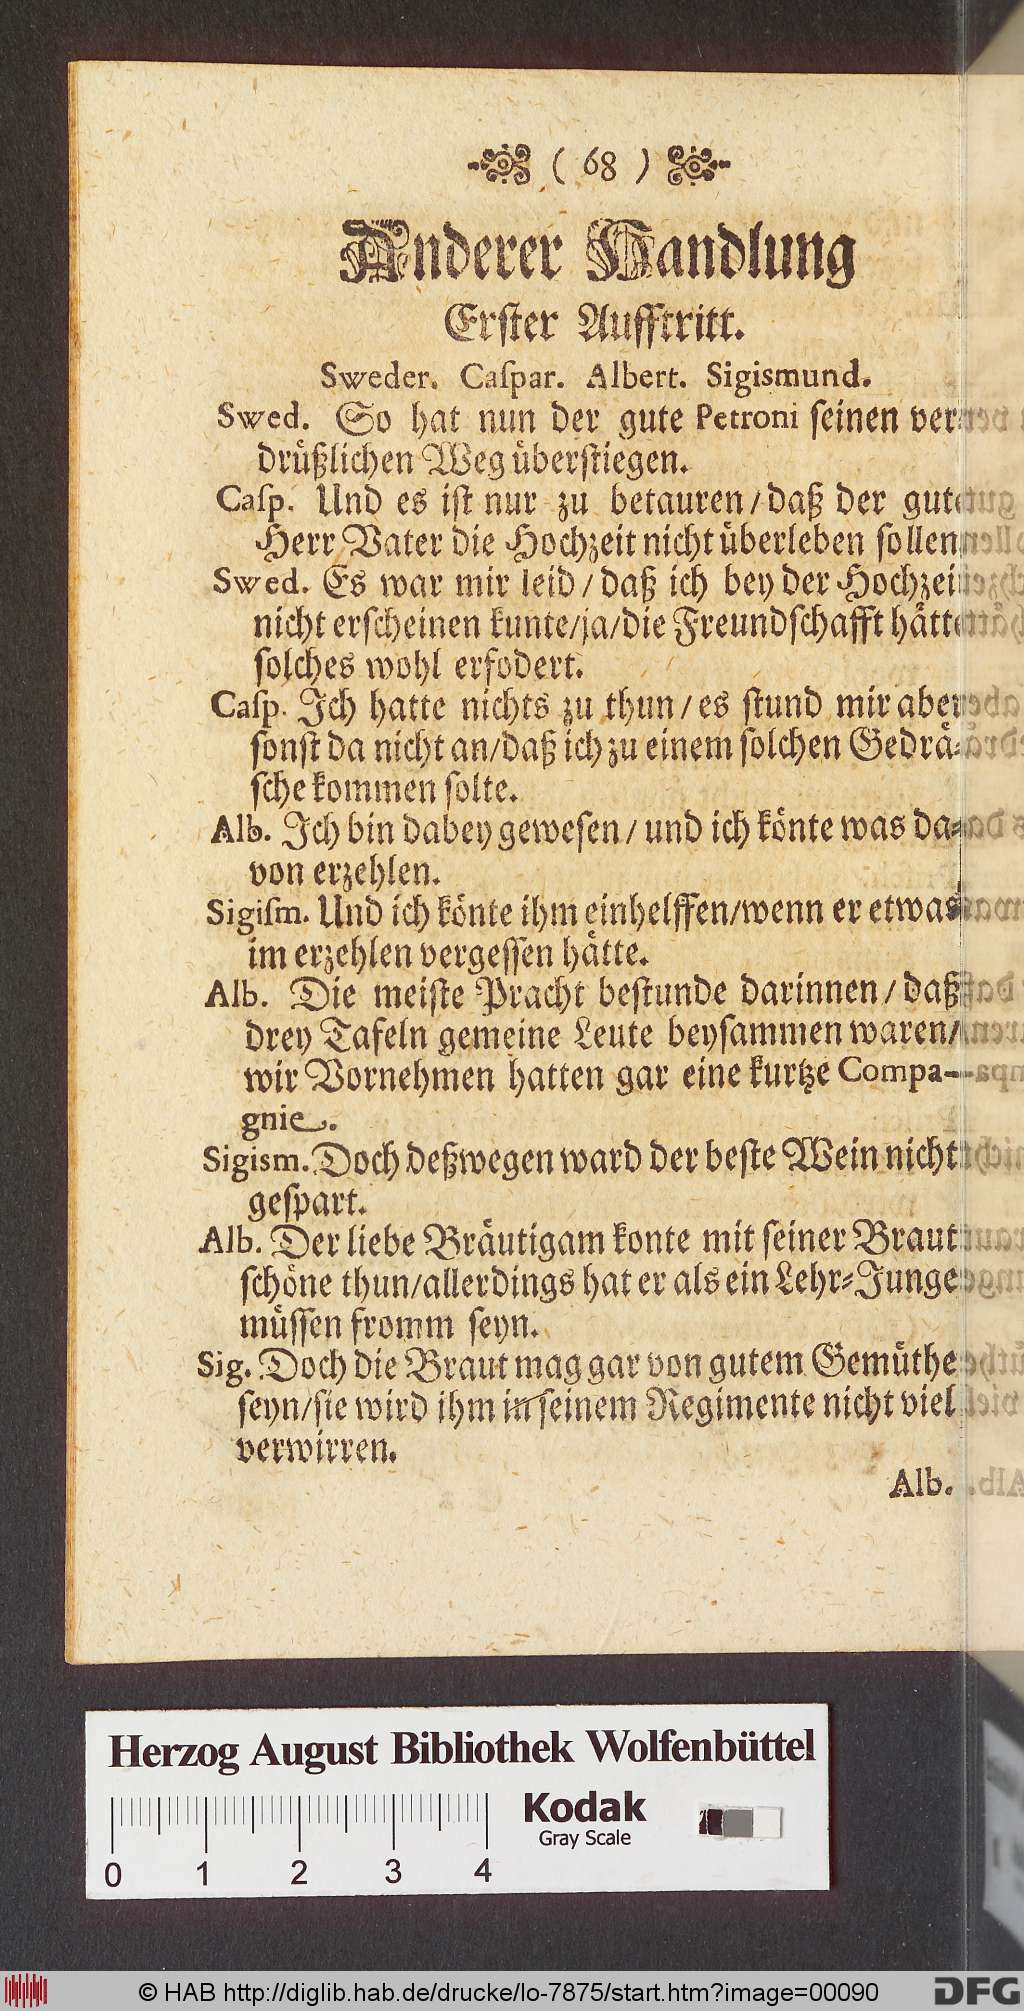 ( 68 )
Anderer Handlung
Erster Aufftritt.
Sweder. Caſpar. Albert. Sigismund.
Swed. So hat nun der gute Petroni seinen ver-
drüßlichen Weg überstiegen.
Caſp. Und es ist nur zu betauren/daß der gute
Herr Vater die Hochzeit nicht überleben sollen.
Swed. Es war mir leid/daß ich bey der Hochzeit
nicht erscheinen kunte/ja/die Freundschafft hätte
solches wohl erfodert.
Caſp. Ich hatte nichts zu thun/es stund mir aber
sonst da nicht an/daß ich zu einem solchen Gedrä-
sche kommen solte.
Alb. Ich bin dabey gewesen/und ich könte was da-
von erzehlen.
Sigiſm. Und ich könte ihm einhelffen/wenn er etwas
im erzehlen vergessen hätte.
Alb. Die meiste Pracht bestunde darinnen/daß
drey Tafeln gemeine Leute beysammen waren/
wir Vornehmen hatten gar eine kurtze Compa-
gnie.
Sigism. Doch deßwegen ward der beste Wein nicht
gespart.
Alb. Der liebe Bräutigam konte mit seiner Braut
schöne thun/allerdings hat er als ein Lehr-Junge
müssen fromm seyn.
Sig. Doch die Braut mag gar von gutem Gemüthe
seyn/sie wird ihm in seinem Regimente nicht viel
verwirren.
Alb.
Herzog August Bibliothek Wolfenbüttel
Kodak
Gray Scale
0 1 2 3 4
© HAB http://diglib.hab.de/drucke/lo-7875/start.htm?image=00090
DFG